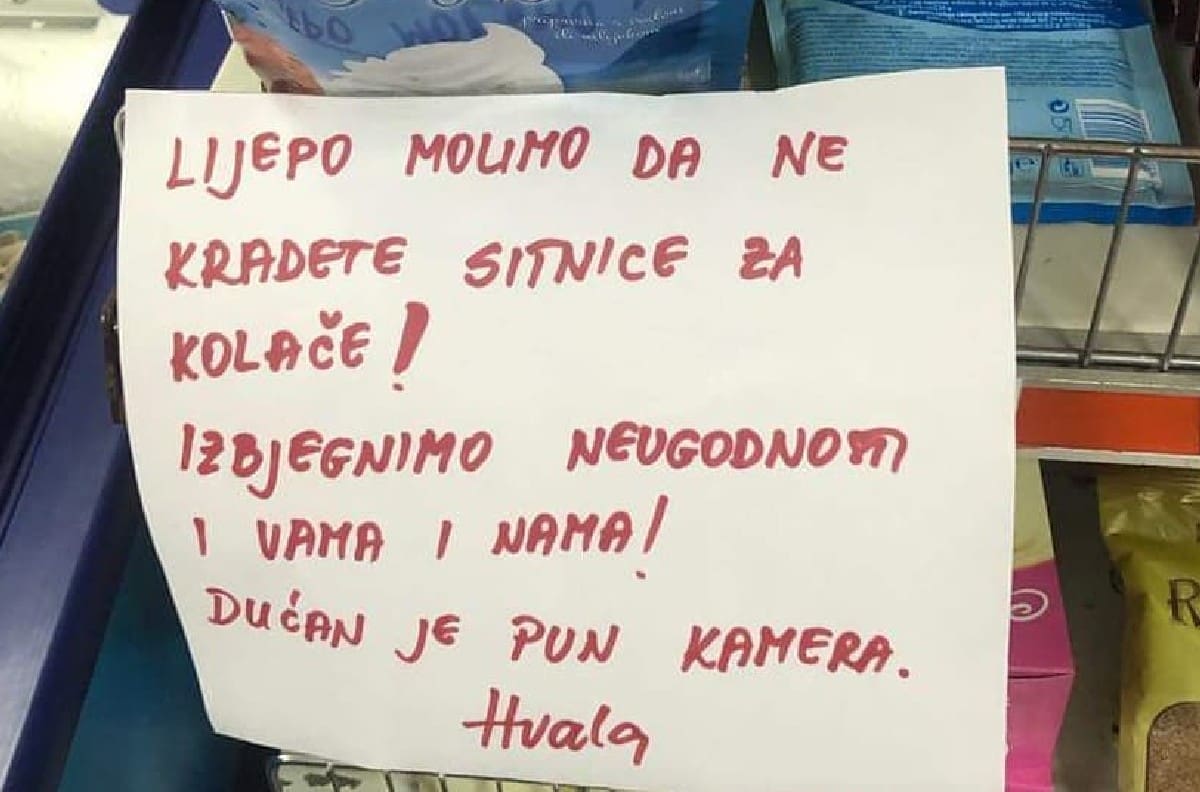 LIJEPO MOLIMO DA NE
KRADETE SITNICE ZA
KOLAČE!
IZBJEGNIMO NEUGODNOSTI
I VAMA I NAMA!
DUĆAN JE PUN KAMERA.
Hvala